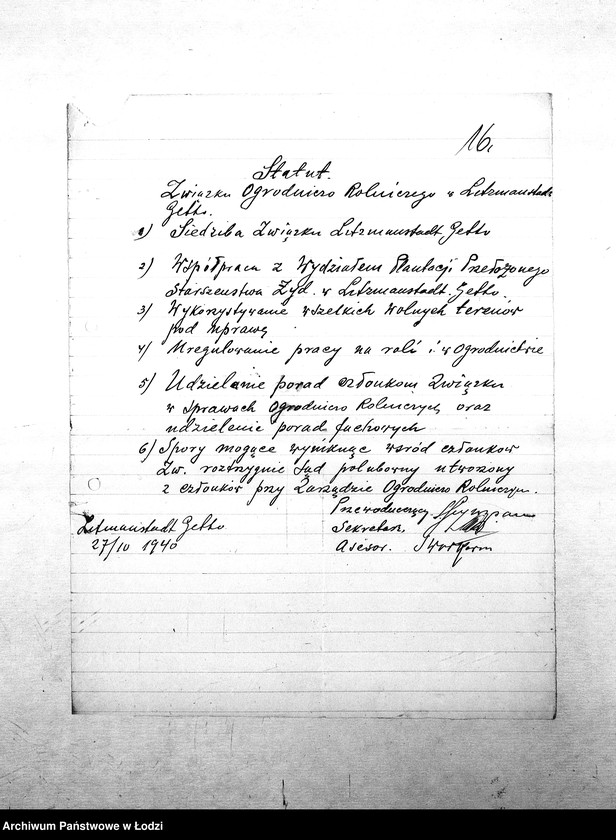 16.
Statut.
Związku Ogrodniczo Rolniczego w Litzmanstadt
Getto.
1) Siedziba Związku Litzmanstadt Getto
2) Współpraca z Wydziałem Plantacji Przełożonego
Starszeństwa Żyd. w Litzmanstadt. Getto.
3) Wykorzystywanie wszelkich wolnych terenów
pod uprawę
4) Uregulowanie pracy na roli i w Ogrodnictwie
5) Udzielanie porad członkom Związku
w sprawach Ogrodniczo Rolniczych oraz
udzielenie porad fachowych
6) Spory mogące wyniknąć wsród członków
Zw. roztrzygnie Sąd polubowny utworzony
z członków przy Zarządzie Ogrodniczo Rolniczym.
Przewodniczący
Litmanstadt Getto
Sekretarz,
27/IV 1940
Asesor.
Archiwum Państwowe w Łodzi